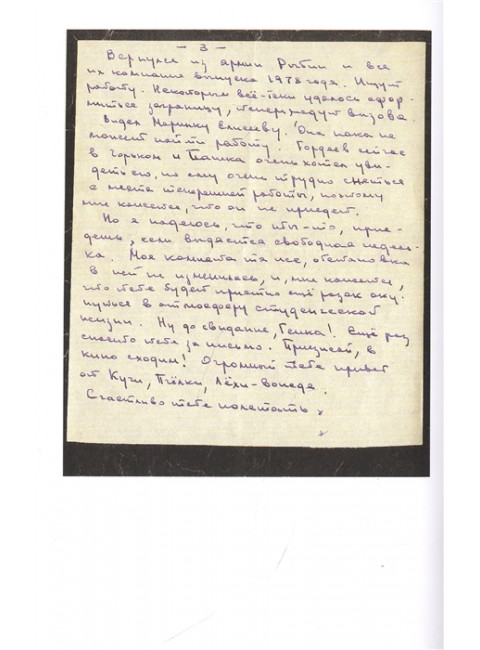 - 3 -
Вернулся из армии Рытин и вся
их компания выпуска 1978 года. Ищут
работу. Некоторым всё-таки удалось офор-
миться заграницу, теперь ждут вызова.
Видел Маринку Елисееву. Она пока не
может найти работу! Гордеев сейчас
в Горьком и Пашка очень хотел уви-
деть его, но ему очень трудно смыться
с места теперешней работы, поэтому
мне кажется, что он не приедет.
Но я надеюсь, что ты-то, прие-
дешь, если выдастся свободная неделя-
ка. Моя комната та же, обстановка
в ней не изменилась, и, мне кажется,
что тебе будет приятно ещё разок оку-
нуться в атмосферу студенческой
жизни. Ну до свидания, Генка! Ещё раз
спасибо тебе за письмо. Приезжай, в
кино сходим! Огромный тебе привет
от Кучи, Пчёлки, Лёхи-
Счастливо тебе полетать